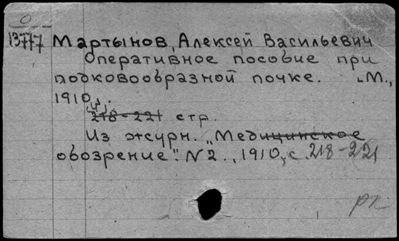 0
13777 Мартынов, Алексей Васильевич
Оперативное пособие при
подковообразной почке. М.,
1910,
218-221 стр.
Из журн. "Медицинское
обозрение". N2., 1910, с. 218-221